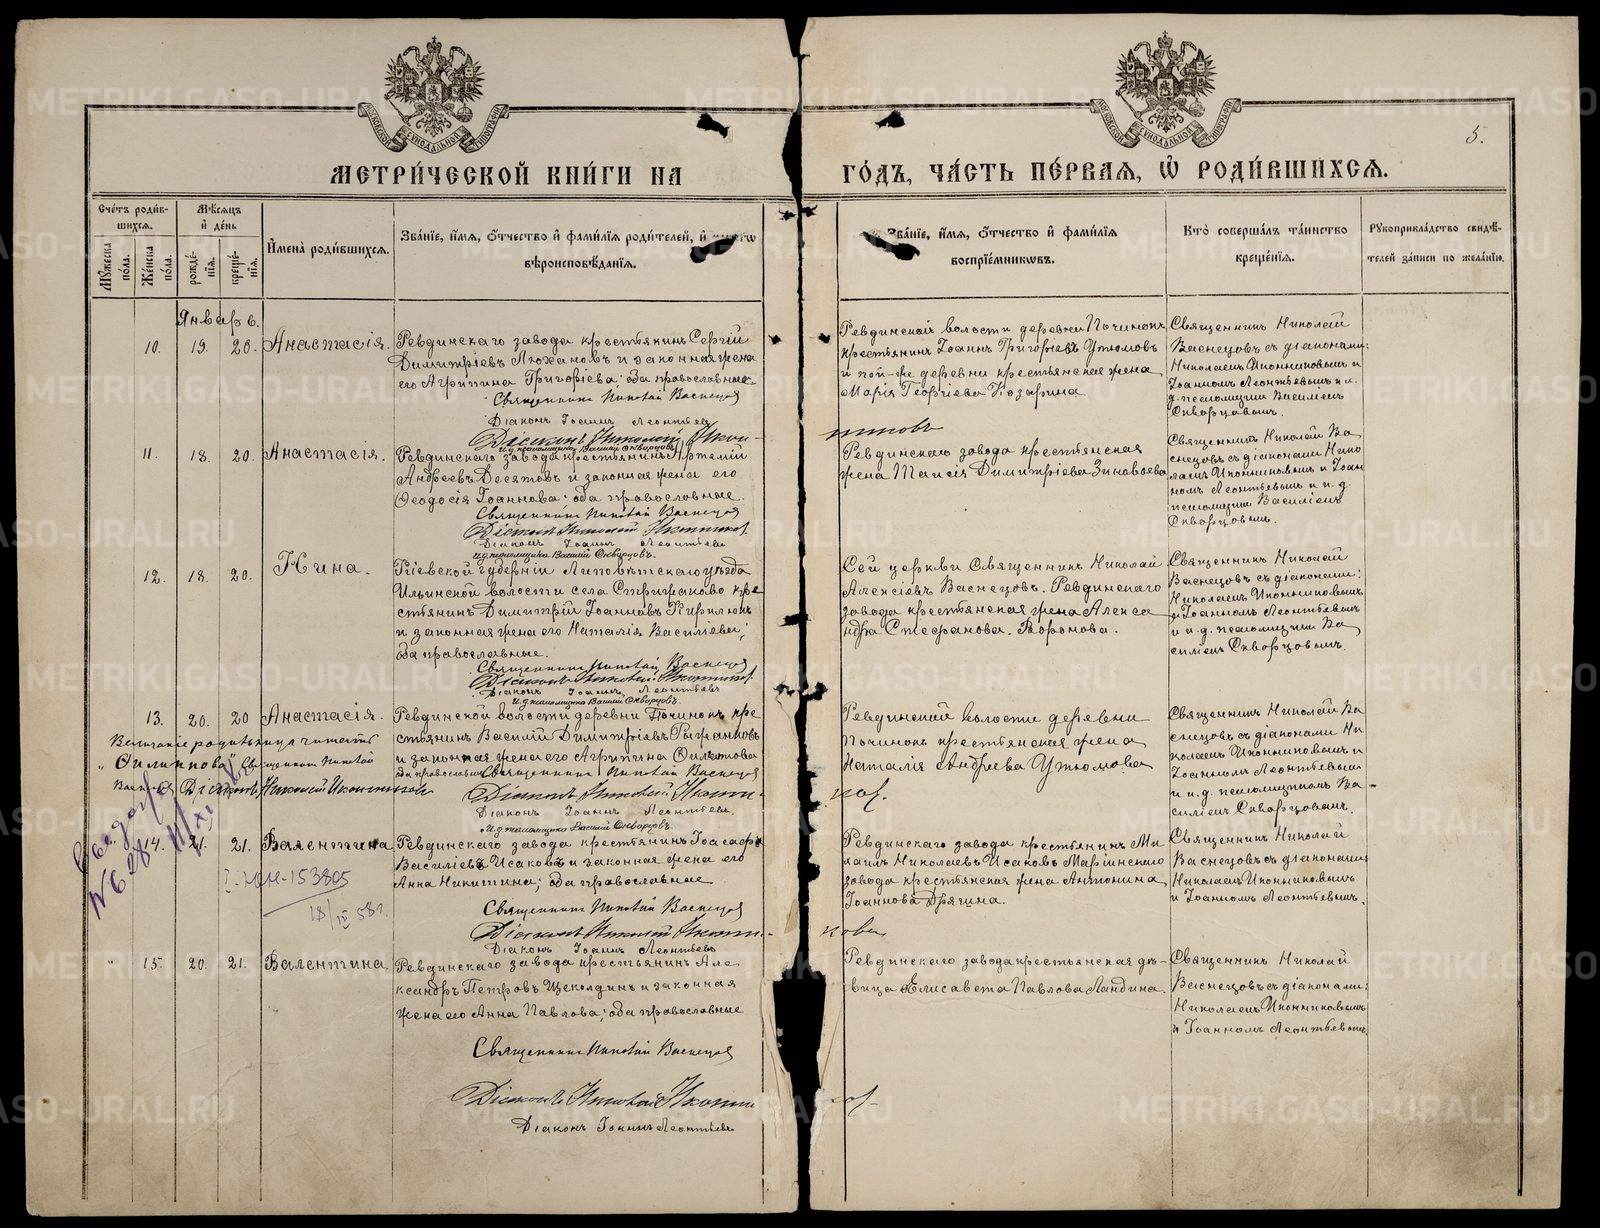 МЕТРИ́ЧЕСКОЙ КНИ́ГИ НА ГО́ДЪ, ЧА́СТЬ ПЕ́РВАЯ, Ѡ҆ РОДИ́ВШИХСЯ.
5.
Сче́тъ роди́в-
шихся.
Мѣ́сяцъ
и҆ де́нь
И҆мена̀ роди́вшихся.
Зва́нїе, и҆́мя, ѻ҆́тчество и҆ фами́лїя роди́телей, и҆
вѣроисповѣ́данїя.
Зва́нїе, и҆́мя, ѻ҆́тчество и҆ фами́лїя
воспрїе́мниковъ.
Кто̀ соверша́лъ та́инство
креще́нїя.
Рꙋкоприкла́дство свидѣ́-
телей за́писи по жела́нїю.
Мꙋ́жеска
по́ла.
Же́нска
по́ла.
рожде́-
нїя.
креще́-
нїя.
Январь.
10. 19. 20. Анастасія.
Ревдинскаго завода крестьянинъ Сергій
Димитріевъ Люхановъ и законная жена
его Агрипина Григоріева; оба православные
Священникъ Николай Васнецов
Діаконъ Іоаннъ Леонтьев
Діаконъ Николай Икон-
никовъ
И.д. псаломщика Василій Скворцовъ.
Ревдинской волости деревни Починокъ
крестьянинъ Іоаннъ Григоріевъ Утюмовъ
и той-же деревни крестьянская жена
Марія Георгіева Козарина.
Священникъ Николай
Васнецовъ съ діаконами:
Николаемъ Иконниковымъ и
Іоанномъ Леонтьевымъ и и.
д. псаломщика Василіемъ
Скворцовымъ.
11. 18. 20. Анастасія.
Ревдинскаго завода крестьянинъ Артемій
Андреевъ Десятовъ и законная жена его
Ѳеодосія Іоаннова; оба православные.
Священникъ Николай Васнецов
Діаконъ Николай Иконников.
Діаконъ Іоаннъ Леонтьевъ
И.д. псаломщика Василій Скворцовъ.
Ревдинскаго завода крестьянская
жена Таисія Димитріева Зиновьева
Священникъ Николай Ва
снецовъ съ діаконами Нико
лаемъ Иконниковымъ и Іоан
номъ Леонтьевымъ и и. д.
псаломщика Василіемъ
Скворцовымъ.
12. 18. 20. Нина.
Кіевской губерніи Липовѣтскаго уѣзда
Ильинской волости села Стрижаково кре
стьянинъ Димитрій Іоанновъ Кирилюкъ
и законная жена его Наталія Василіева;
оба православные.
Священникъ Николай Васнецов
Діаконъ Николай Иконников.
Діаконъ Іоаннъ Леонтьевъ
И.д. псаломщика Василій Скворцовъ.
Сей церкви Священникъ Николай
Алексіевъ Васнецовъ. Ревдинскаго
завода крестьянская жена Алекса
ндра Стефанова Воронова.
Священникъ Николай
Васнецовъ съ діаконами:
Николаемъ Иконниковымъ
и Іоанномъ Леонтьевымъ
и и. д. псаломщика Ва
силіемъ Скворцовымъ.
13. 20. 20 Анастасія.
Ревдинской волости деревни Починокъ кре
стьянинъ Василій Димитріевъ
и законная жена его Агрипина Филатова
оба православные Священникъ Николай Васнецов
Діаконъ Николай Икон-
ков.
Діаконъ Іоаннъ Леонтьевъ
И.д. псаломщика Василій Скворцовъ.
Ревдинской волости деревни
Починокъ крестьянская жена
Наталія Андреева Утюмова
Священникъ Николай Ва
снецовъ съ діаконами Ни
колаемъ Иконниковымъ и
Іоанномъ Леонтьевымъ
и и.д. псаломщикомъ Ва-
силіемъ Скворцовымъ.
родильницы читать
Священникъ Николай
Васнецов Діаконъ Николай Иконников
14. 21. 21. Валентина
Ревдинскаго завода крестьянинъ Іоасафъ
Василіевъ Исаковъ и законная жена его
Анна Никитина; оба православные
Священникъ Николай Васнецов
Діаконъ Николай Икони-
кова
Діаконъ Іоаннъ Леонтьевъ
Ревдинскаго завода крестьянинъ Ми
хаилъ Николаевъ Исаковъ Маріинскаго
завода крестьянская жена Антонина
Іоаннова Дрягина.
Священникъ Николай
Васнецовъ съ діаконами
Николаемъ Иконниковымъ
и Іоанномъ Леонтьевымъ.
ЮН-153805
18/IV 58г.
15. 20. 21. Валентина.
Ревдинскаго завода крестьянинъ Але
ксандръ Петровъ Щеколдинъ и законная
жена его Анна Павлова; оба православные
Священникъ Николай Васнецов
Діаконъ Николай Иконни
ков.
Діаконъ Іоаннъ Леонтьевъ
Ревдинскаго завода крестьянская дѣ-
вица Елисавета Павлова Ландина.
Священникъ Николай
Васнецовъ съ діаконами:
Николаемъ Иконниковымъ
и Іоанномъ Леонтьевымъ
METRIKI.GASO-URAL.RU